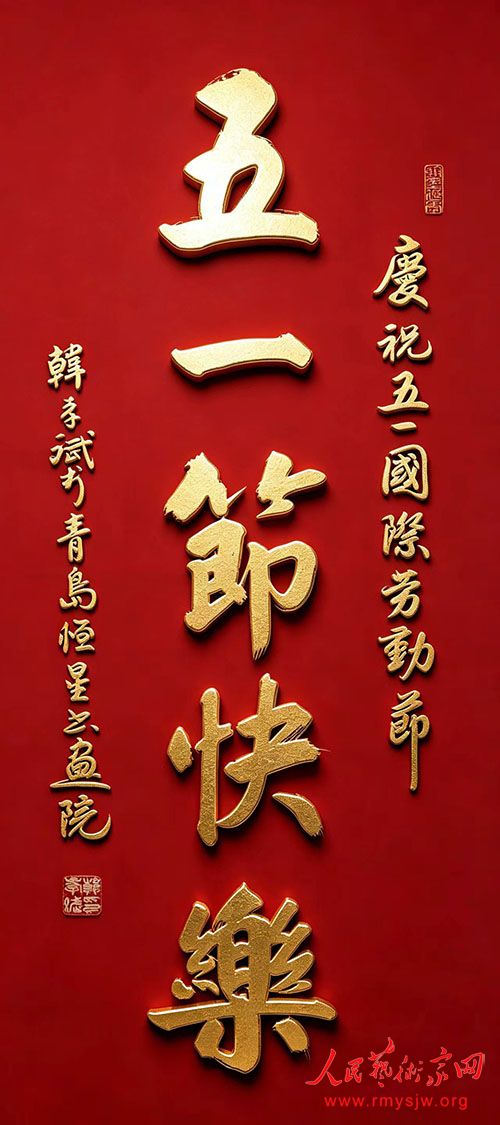 慶祝五一國際劳動節
五一節快樂
韓孝斌书青島恒星书画院
人民艺術家网
www.rmysjw.org